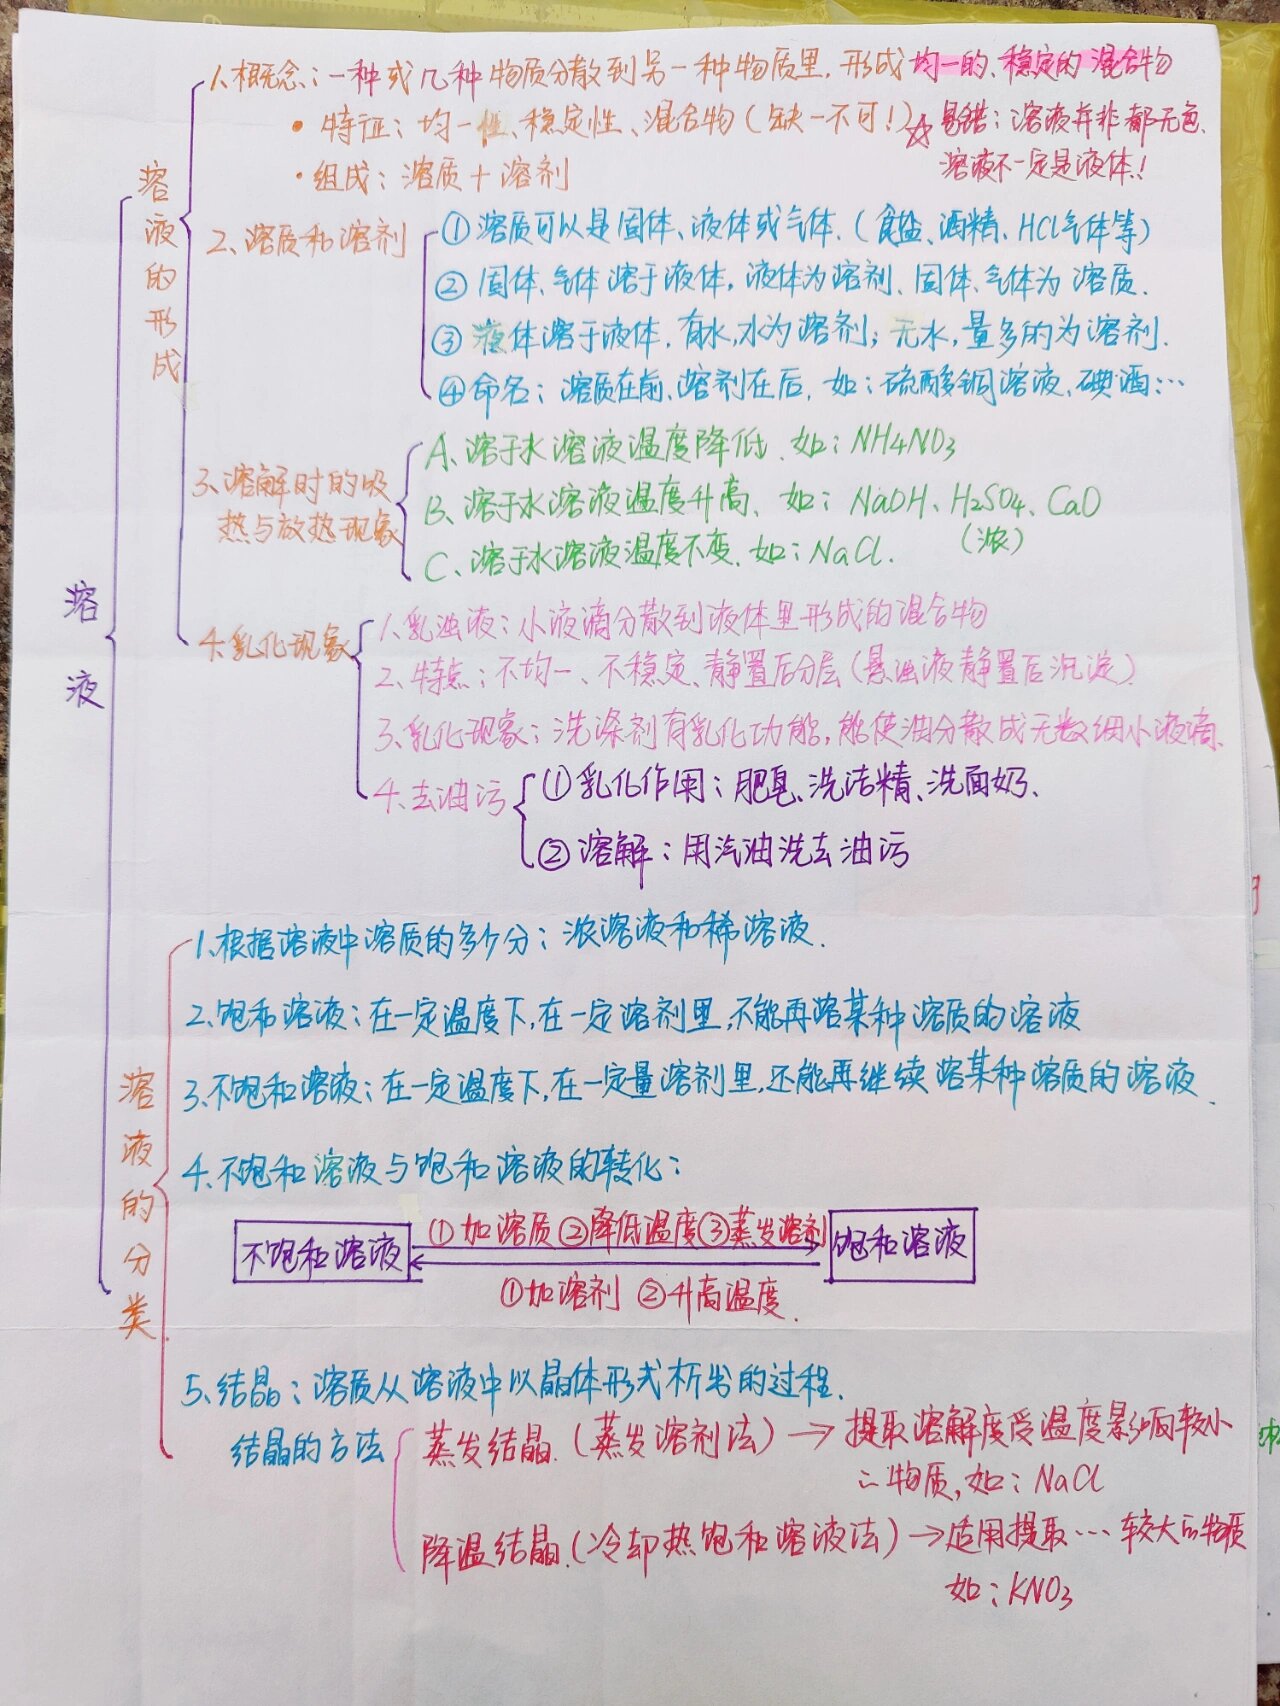 溶液
溶液的形成
1.概念：一种或几种物质分散到另一种物质里，形成均一的、稳定的混合物
·特征：均一性、稳定性、混合物（缺一不可！）☆易错：溶液并非都无色、
溶液不一定是液体！
·组成：溶质+溶剂
2、溶质和溶剂
①溶质可以是固体、液体或气体．（食盐、酒精、HCl气体等）
②固体、气体溶于液体，液体为溶剂、固体、气体为溶质．
③液体溶于液体，有水，水为溶剂；无水，量多的为溶剂．
④命名：溶质在前、溶剂在后，如：硫酸铜溶液、碘酒…
3、溶解时的吸
热与放热现象
A、溶于水溶液温度降低．如：NH4NO3
B、溶于水溶液温度升高、如：NaOH、H2SO4、CaO
（浓）
C、溶于水溶液温度不变．如：NaCl．
4.乳化现象
1.乳浊液：小液滴分散到液体里形成的混合物
2、特点：不均一、不稳定、静置后分层（悬浊液静置后沉淀）
3、乳化现象：洗涤剂有乳化功能，能使油分散成无数细小液滴．
4.去油污
①乳化作用：肥皂、洗洁精、洗面奶、
②溶解：用汽油洗去油污
溶液的分类
1.根据溶液中溶质的多少分：浓溶液和稀溶液．
2.饱和溶液：在一定温度下，在一定溶剂里，不能再溶某种溶质的溶液
3、不饱和溶液：在一定温度下，在一定量溶剂里，还能再继续溶某种溶质的溶液．
4.不饱和溶液与饱和溶液的转化：
①加溶质②降低温度③蒸发溶剂
不饱和溶液 饱和溶液
①加溶剂 ②升高温度．
5、结晶：溶质从溶液中以晶体形式析出的过程．
结晶的方法
蒸发结晶．（蒸发溶剂法）→提取溶解度受温度影响较小
物质，如：NaCl
降温结晶．（冷却热饱和溶液法）→适用提取…较大的物质
如：KNO3